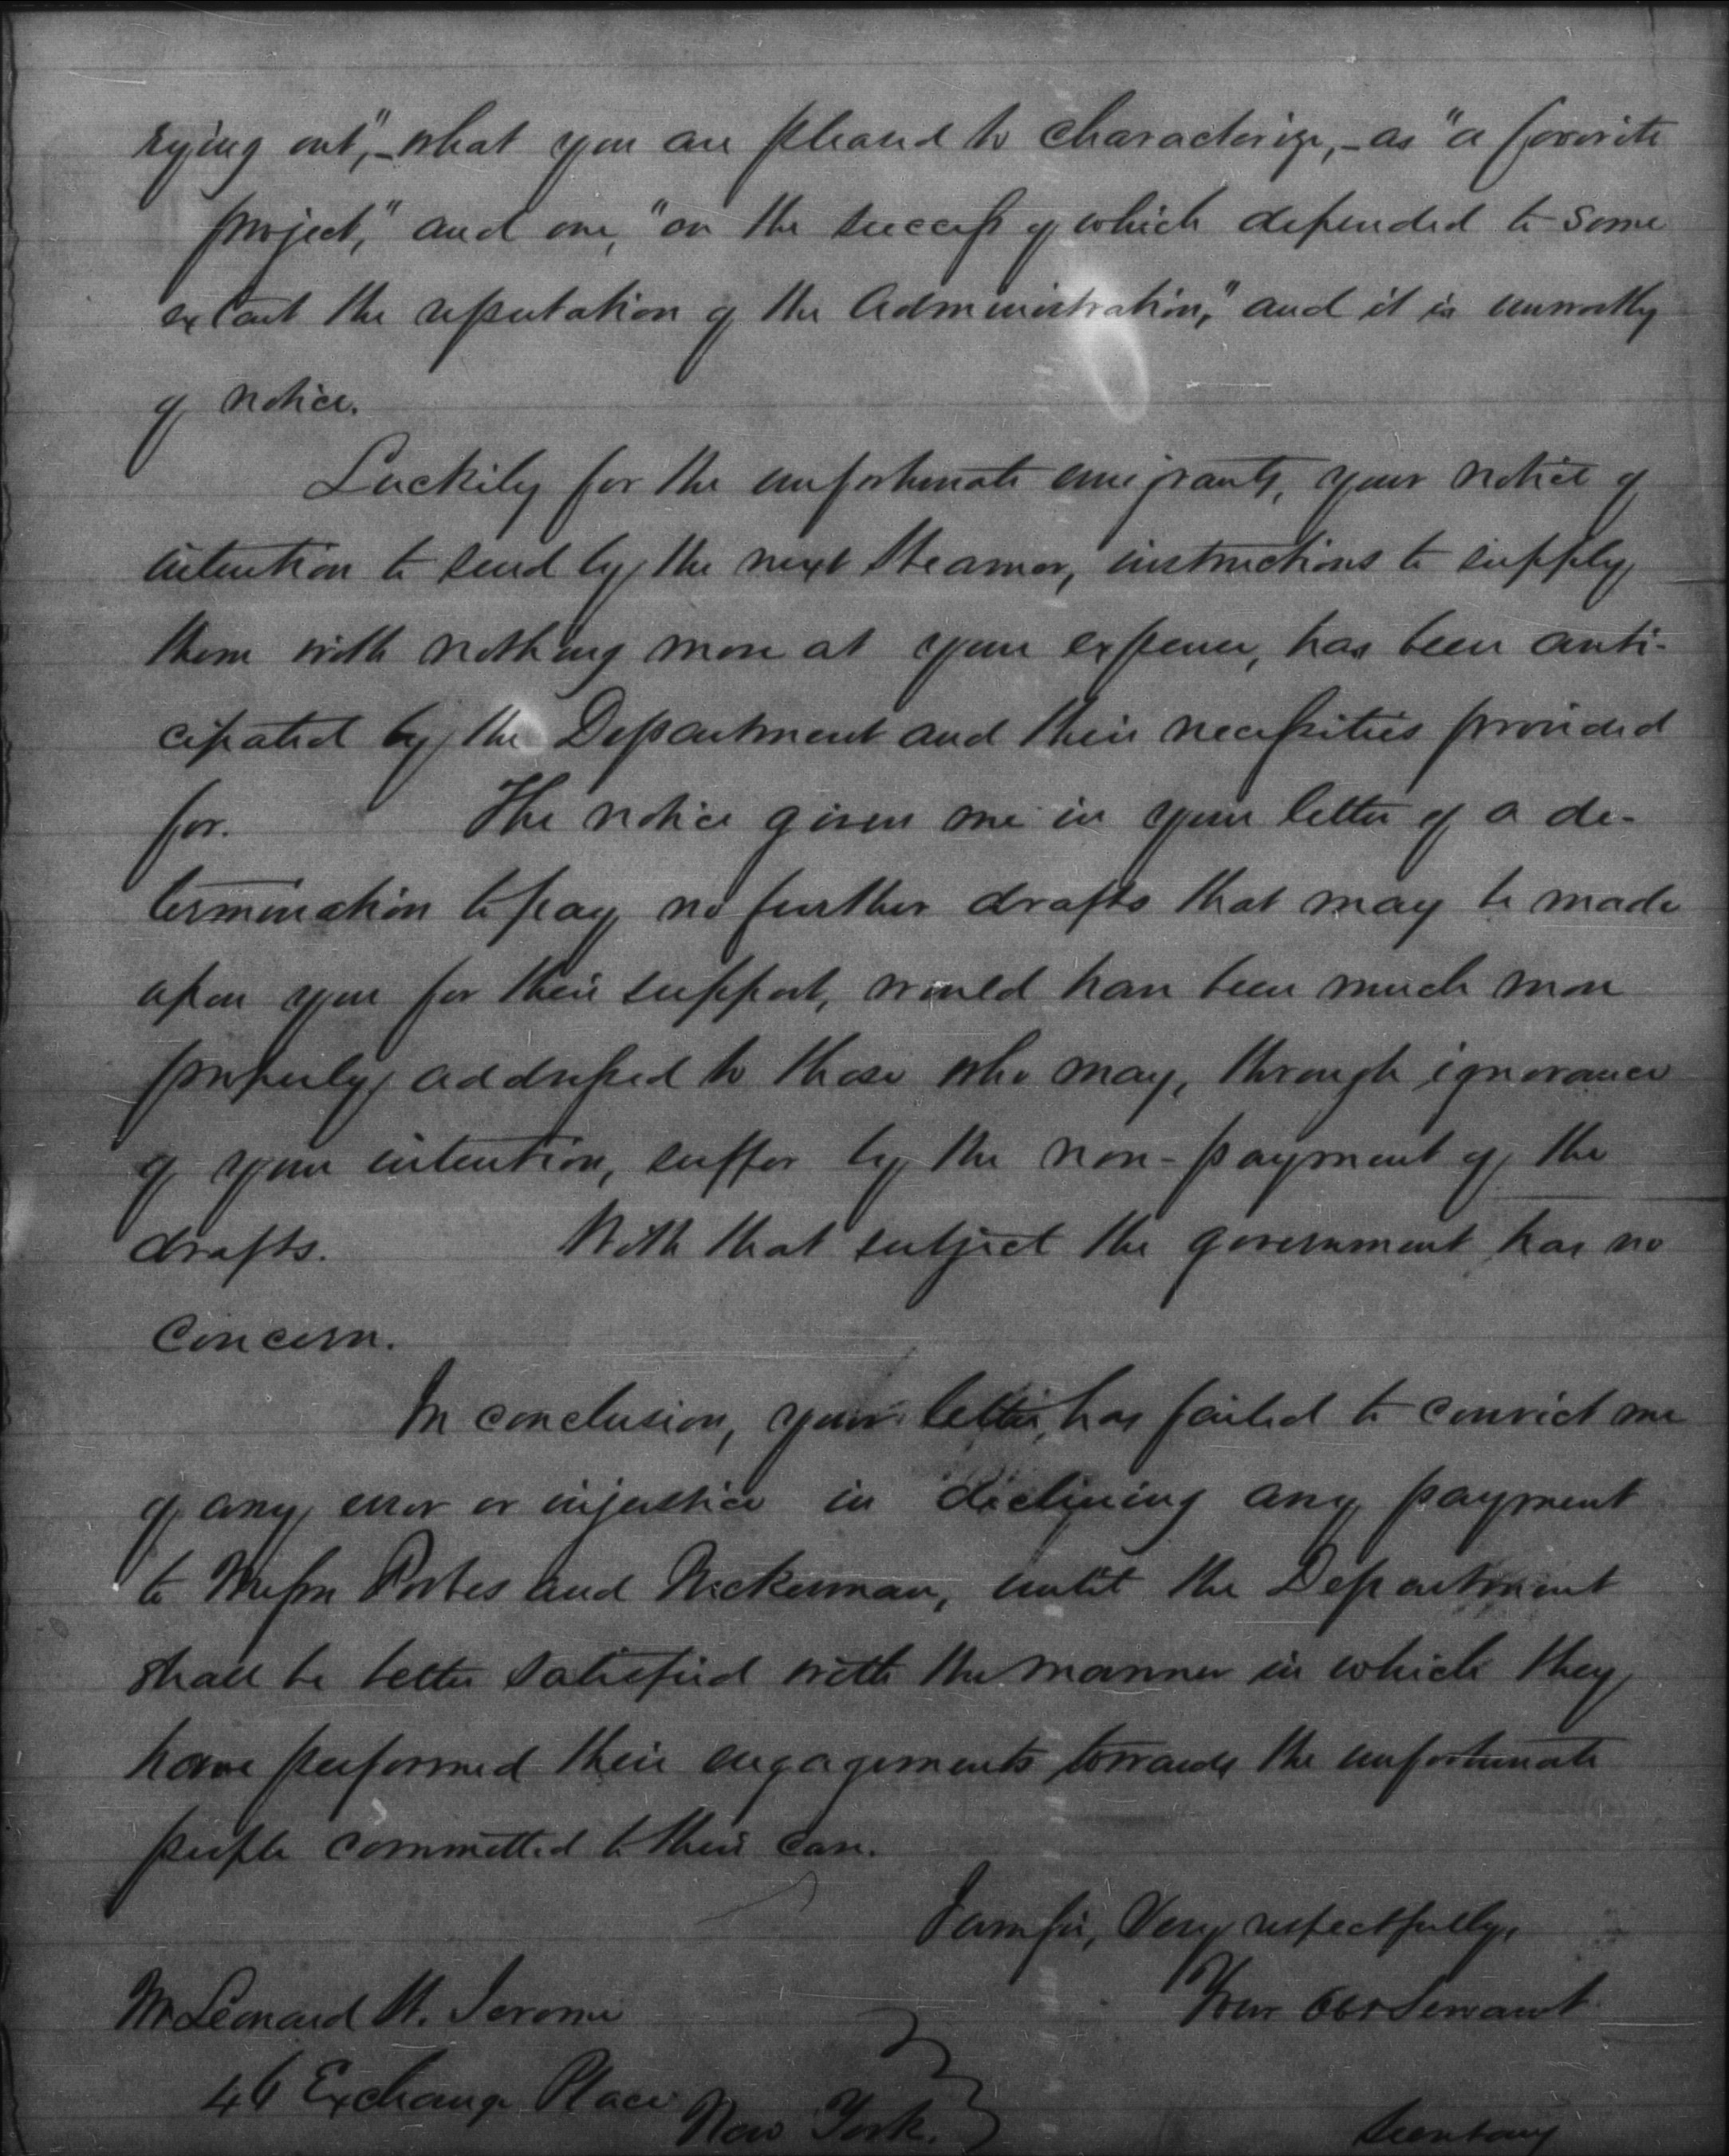 rying out", – what you are pleased to characterize, – as "a favorite
project," and one, "on the success of which depended to some
extent the reputation of the Administration," and it is unworthy
of notice.
Luckily for the unfortunate emigrants, your notice of
intention to send by the next steamer, instructions to supply
them with nothing more at your expense, has been anti-
cipated by the Department and their necessities provided
for. The notice given me in your letter of a de-
termination to pay no further drafts that may be made
upon you for their support, would have been much more
properly addressed to those who may, through ignorance
of your intention, suffer by the non-payment of the
drafts. With that subject the government has no
concern.
In conclusion, your letter, has failed to convict me
of any error or injustice in declining any payment
to Messrs Forbes and Tuckerman, until the Department
shall be better satisfied with the manner in which they
have performed their engagements towards the unfortunate
people committed to their care.
I am sir, Very respectfully,
Your Obt Servant
Mr Leonard W. Jerome
46 Exchange Place
New York.
Secretary